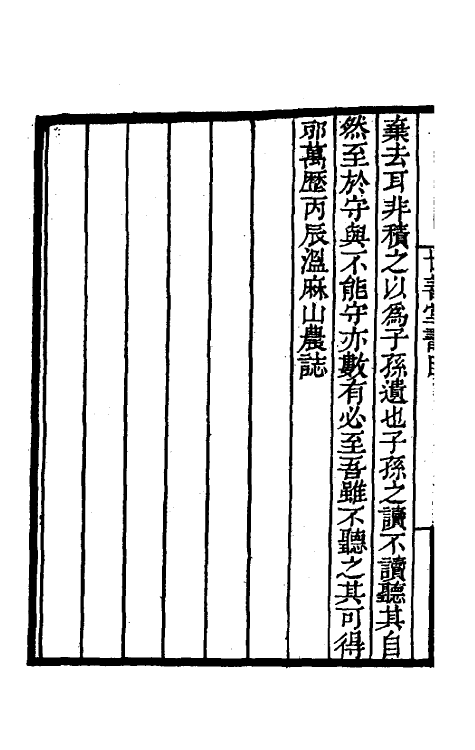 棄去耳非積之以為子孫遺也子孫之讀不讀聽其自
然至於守與不能守亦數有必至吾雖不聽之其可得
耶萬歷丙辰溫麻山農誌